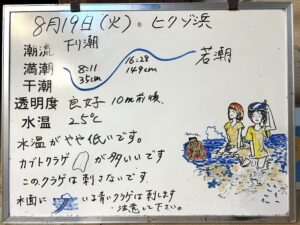 8月19日(火)。ヒリゾ浜
潮流 下り潮 若潮
満潮 8:11 16:28
干潮 35cm 149cm
透明度 良好 10m前後
水温 25℃
水温がやや低いです。
カブトクラゲ が多いです
このクラゲは刺さないです
水面に いる青いクラゲは刺します
注意して下さい。